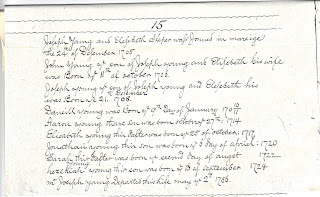 15
Joseph Young and Elesebeth Sleper wass Joined in mareige
the 24th of Desember 1705
John Young ye son of Joseph young and Elesbeth his wife
was Born ye 11th of october 1706
Joseph young ye son of Joseph young and Elesbeth his
was Born ye 21 Desember 1708
Daniell young was Born ye 9th Day of January
Aaron young there son was born octobery 27th 1714
Elesabeth young this Dafter was born ye 28 of october 1717
Jonathan young this son was born ye 6 day of aperel : 1720
Sarah this Dafter was born ye second day of augst 1722
hezekiah young this son was born ye 13 of september 1724
Joseph young Departed this life may ye 2d 1756